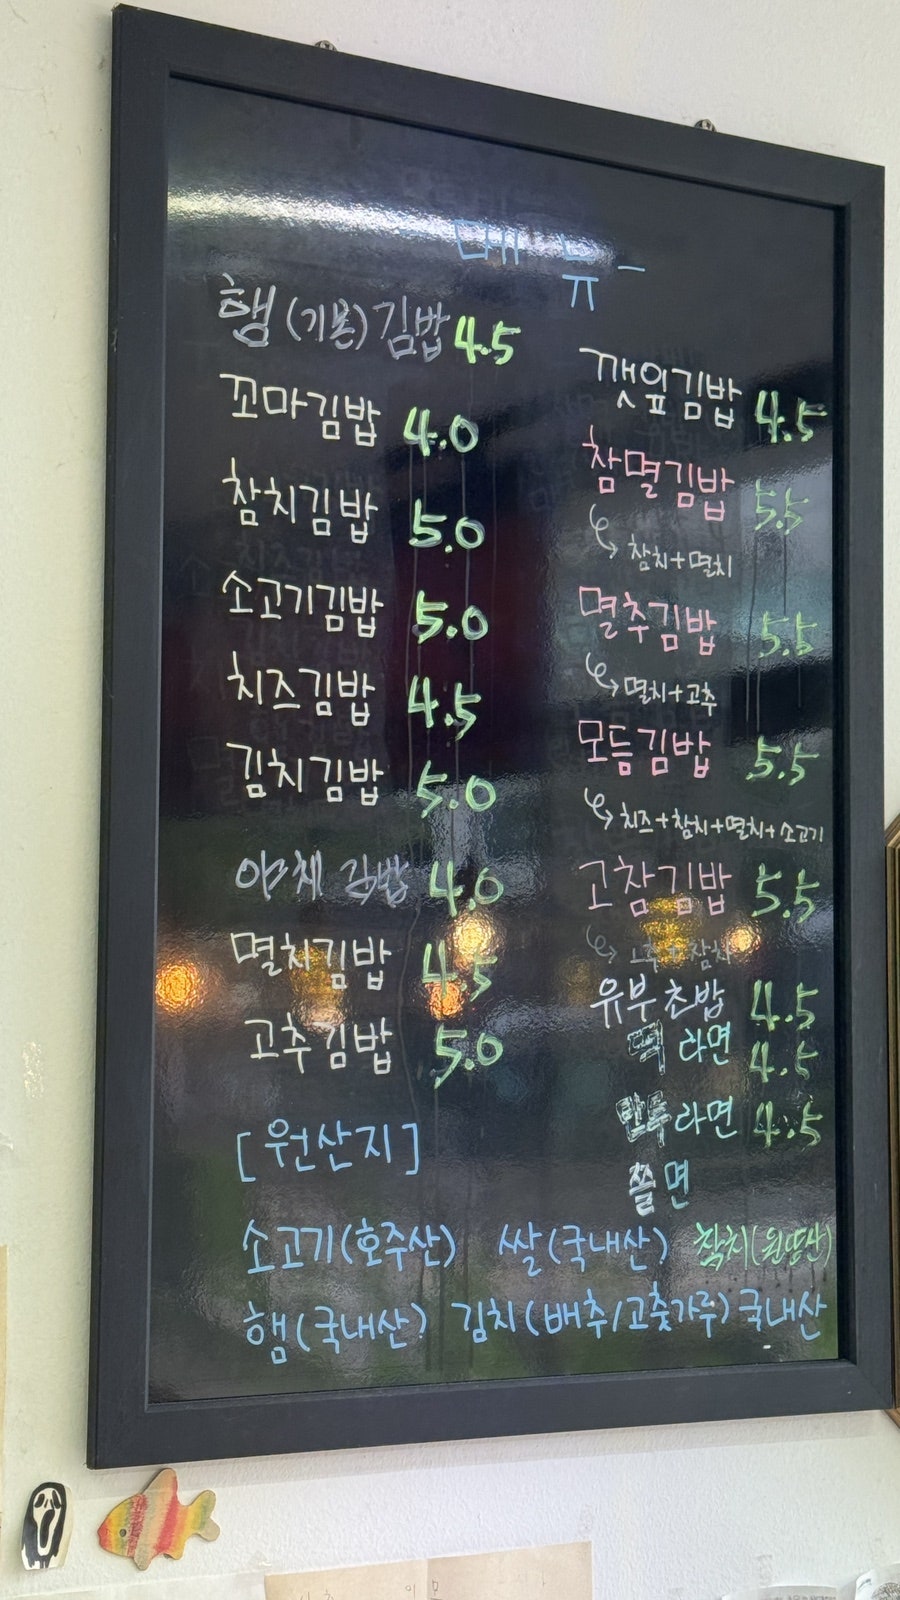 메뉴 -
햄(기본)김밥 4.5
꼬마김밥 4.0
참치김밥 5.0
소고기김밥 5.0
치즈김밥 4.5
김치김밥 5.0
야채 김밥 4.0
멸치김밥 4.5
고추김밥 5.0
깻잎김밥 4.5
참멸김밥 5.5
참치+멸치
멸추김밥 5.5
멸치+고추
모듬김밥 5.5
치즈+참치+멸치+소고기
고참김밥 5.5
고추+참치
유부초밥 4.5
떡라면 4.5
만두라면 4.5
쫄면
[원산지]
소고기(호주산) 쌀(국내산) 참치(원양산)
햄(국내산) 김치(배추/고춧가루)국내산